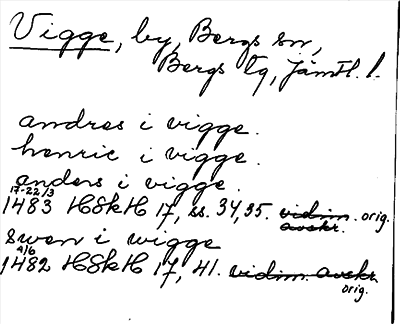 Vigge, by, Bergs sn,
Bergs tg, Jämtl. l.
andres i vigge.
henric i vigge.
anders i vigge.
17-22/3
1483 HSkH 17, ss. 34, 35. vidim. orig.
avskr.
Swen i wigge
4/6
1482 HSkH 17, 41. vidim. avskr.
orig.